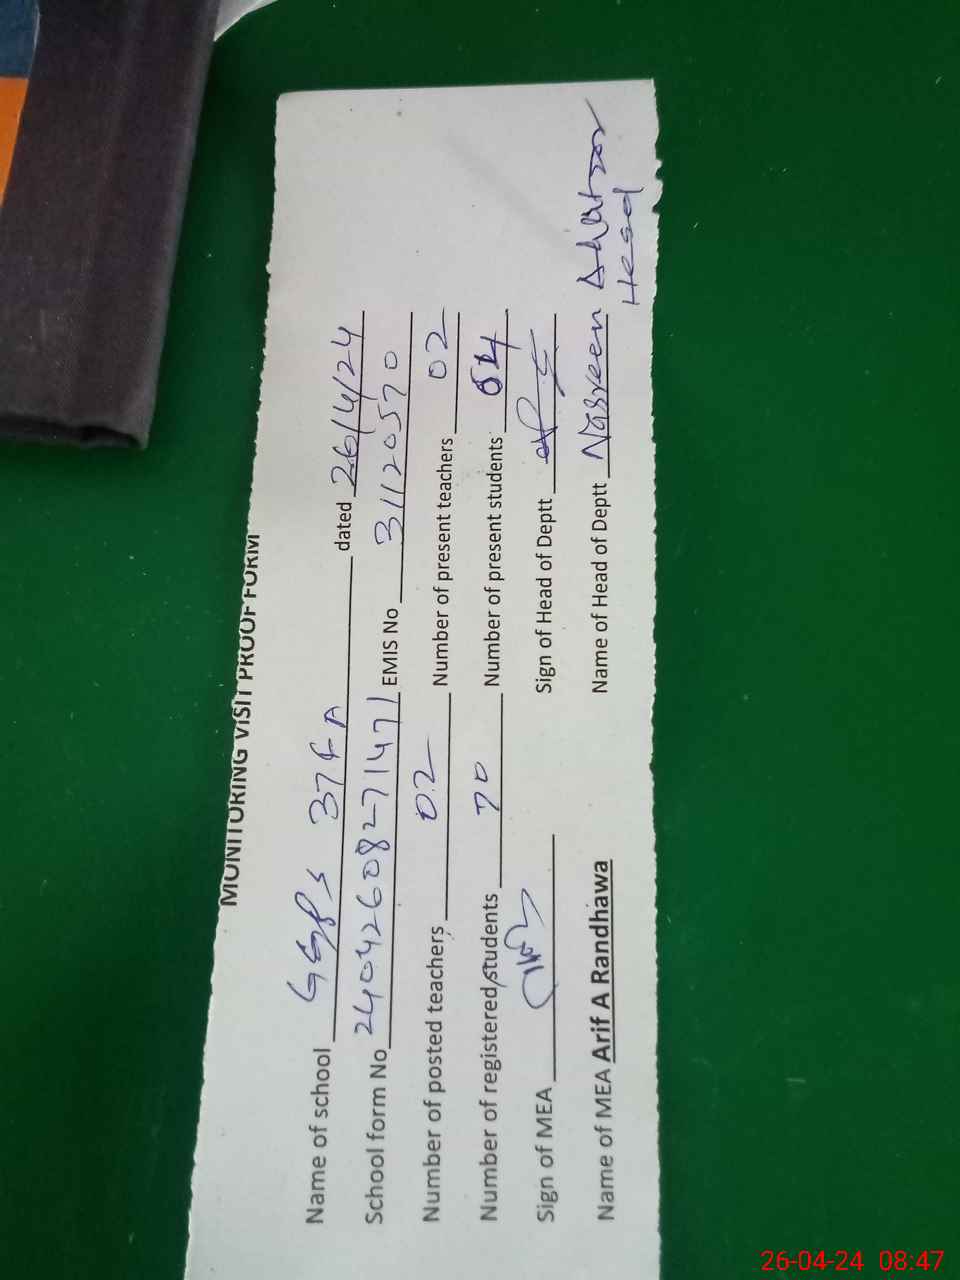 MONITORING VISIT PROOF FORM
Name of school GGPS 37 F A dated 26/4/24
School form No 24042608271471 EMIS No 31120570
Number of posted teachers 02 Number of present teachers 02
Number of registered students 70 Number of present students 64
Sign of MEA Sign of Head of Deptt
Name of MEA Arif A Randhawa Name of Head of Deptt Nasreen
Head
26-04-24 08:47